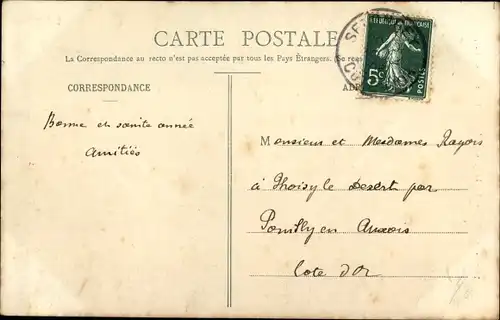 CARTE POSTALE
La Correspondance au recto n'est pas acceptée par tous les Pays Étrangers. (Se
CORRESPONDANCE
RÉPUBLIQUE FRANÇAISE
5c
POSTES
Bonne et sainte année
Amitiés
Monsieur et Mesdames Rayois
à Thoisy le Desert par
Pouilly en Auxois
Cote d'Or